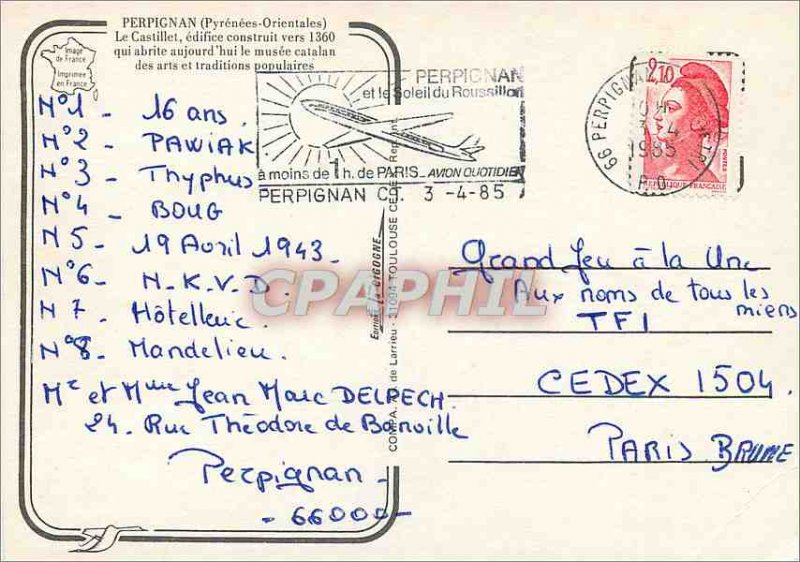 PERPIGNAN (Pyrénées-Orientales)
Le Castillet, édifice construit vers 1360
qui abrite aujourd'hui le musée catalan
des arts et traditions populaires
Image
de France
Imprimée
en France
N°1 - 16 ans.
N°2 - PAWIAK
N°3 - Thyphus
N°4 - BOUG
N 5 - 19 Avril 1943.
N°6 - N.K.V.D.
N 7 - Hôtellerie.
N°8 - Mandelieu.
Mr et Mme Jean Marc DELPECH.
24. Rue Théodore de Banville
Perpignan -
- 66000 -
PERPIGNAN
et le Soleil du Roussillon
à moins de 1 h. de PARIS - AVION QUOTIDIEN
PERPIGNAN 3 -4-85
66 PERPIGNAN
1985
2,10
POSTES
REPUBLIQUE FRANÇAISE
LA CIGOGNE
31094 TOULOUSE
CPAPHIL
Grand Jeu à la Une
Aux noms de tous les
miens
TF1
CEDEX 1504.
PARIS BRUNE